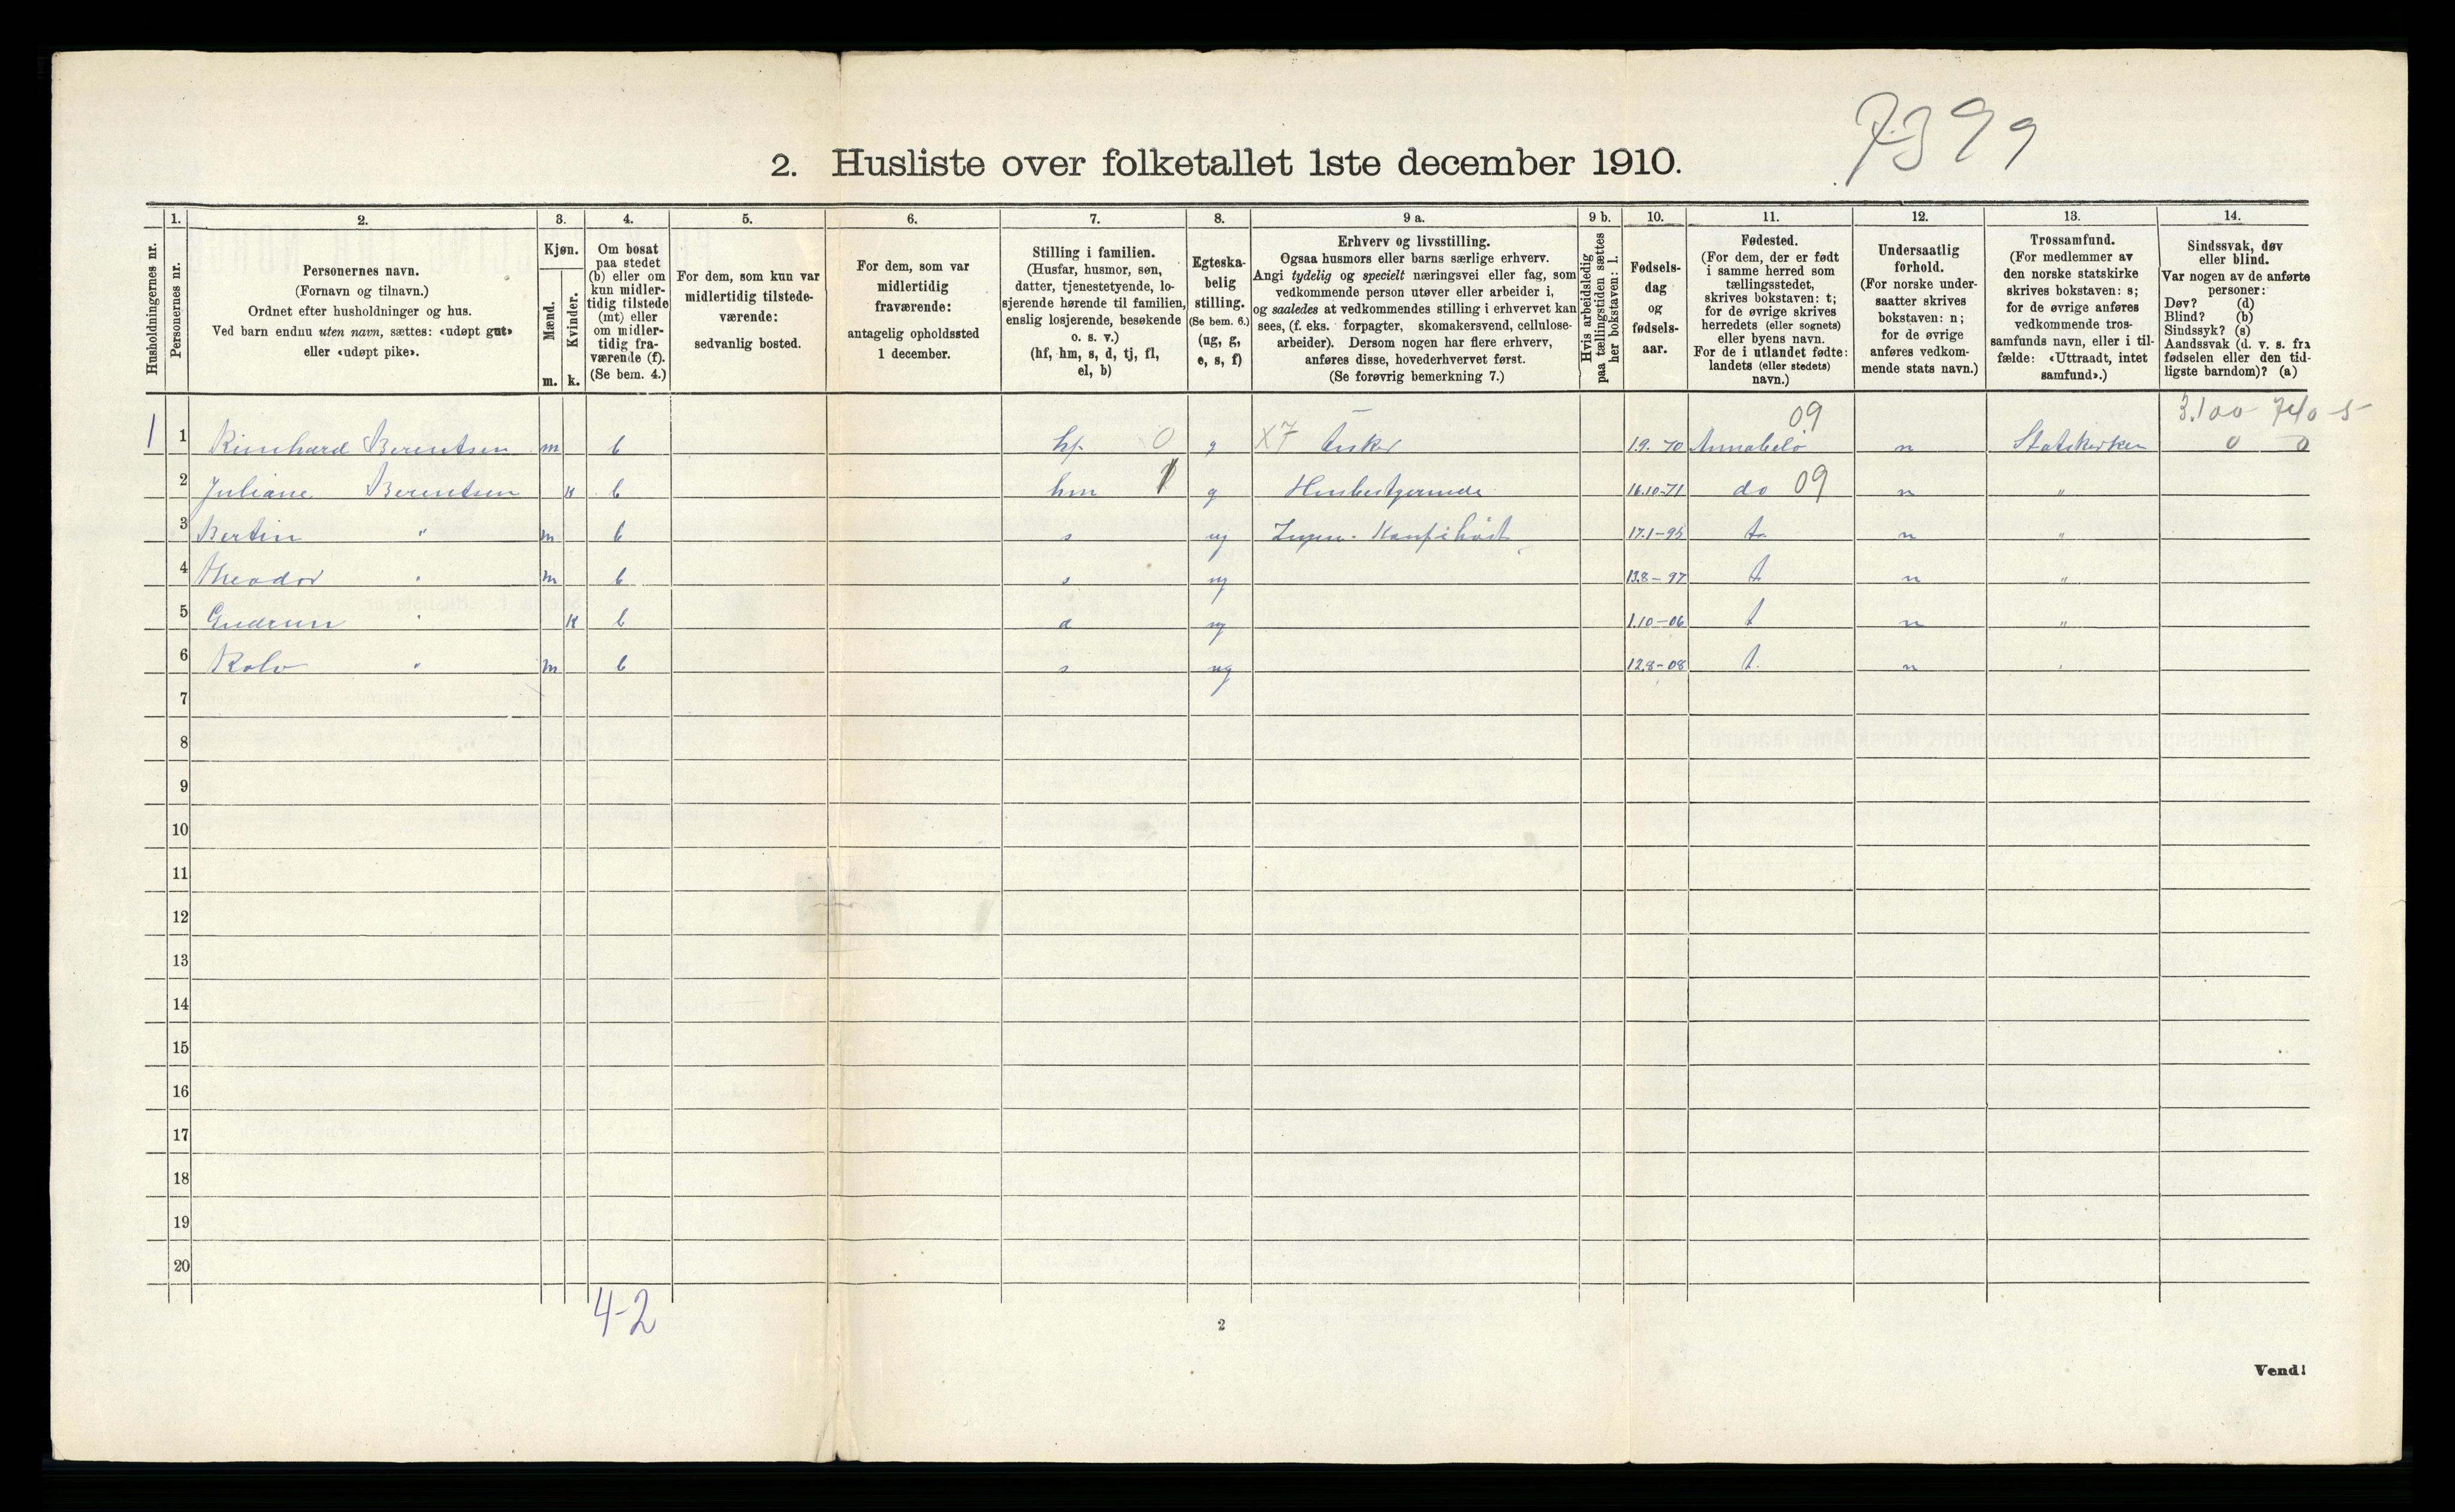 7399
2. Husliste over folketallet 1ste december 1910.
Husholdningernes nr.
1. Personernes nr.
2. Personernes navn.
(Fornavn og tilnavn.)
Ordnet efter husholdninger og hus.
Ved barn endnu uten navn, sættes: «udøpt gut»
eller «udøpt pike».
3. Kjøn.
Mænd. m.
Kvinder. k.
4. Om bosat
paa stedet
(b) eller om
kun midler-
tidig tilstede
(mt) eller
om midler-
tidig fra-
værende (f).
(Se bem. 4.)
5. For dem, som kun var
midlertidig tilstede-
værende:
sedvanlig bosted.
6. For dem, som var
midlertidig
fraværende:
antagelig opholdssted
1 december.
7. Stilling i familien.
(Husfar, husmor, søn,
datter, tjenestetyende, lo-
sjerende hørende til familien,
enslig losjerende, besøkende
o. s. v.)
(hf, hm, s, d, tj, fl,
el, b)
8. Egteska-
belig
stilling.
(Se bem. 6.)
(ug, g,
e, s, f)
9 a. Erhverv og livsstilling.
Ogsaa husmors eller barns særlige erhverv.
Angi tydelig og specielt næringsvei eller fag, som
vedkommende person utøver eller arbeider i,
og saaledes at vedkommendes stilling i erhvervet kan
sees, (f. eks. forpagter, skomakersvend, cellulose-
arbeider). Dersom nogen har flere erhverv,
anføres disse, hovederhvervet først.
(Se forøvrig bemerkning 7.)
9 b. Hvis arbeidsledig
paa tællingstiden sættes
her bokstaven: l.
10. Fødsels-
dag
og
fødsels-
aar.
11. Fødested.
(For dem, der er født
i samme herred som
tællingsstedet,
skrives bokstaven: t;
for de øvrige skrives
herredets (eller sognets)
eller byens navn.
For de i utlandet fødte:
landets (eller stedets)
navn.)
12. Undersaatlig
forhold.
(For norske under-
saatter skrives
bokstaven: n;
for de øvrige
anføres vedkom-
mende stats navn.)
13. Trossamfund.
(For medlemmer av
den norske statskirke
skrives bokstaven: s;
for de øvrige anføres
vedkommende tros-
samfunds navn, eller i til-
fælde: «Uttraadt, intet
samfund».)
14. Sindssvak, døv
eller blind.
Var nogen av de anførte
personer:
Døv? (d)
Blind? (b)
Sindssyk? (s)
Aandssvak (d. v. s. fra
fødselen eller den tid-
ligste barndom)? (a)
09 3.100 740-5
1 1 Reinhard Berentsen m b hf 0 g X7 1.9.70 n Statskirken 0 0
2 Juliane Berentsen k b hm 1 g Husbestyrende 16.10-71 do 09 n "
3 Bertin " m b s ug 17.1-95 t. n "
4 Theodor " m b s ug 13.8-97 t n "
5 Gudrun " k b d ug 1.10-06 t n "
6 Rolv " m b s ug 12.8-08 t. n "
7
8
9
10
11
12
13
14
15
16
17
18
19
20
4-2
2
Vend!